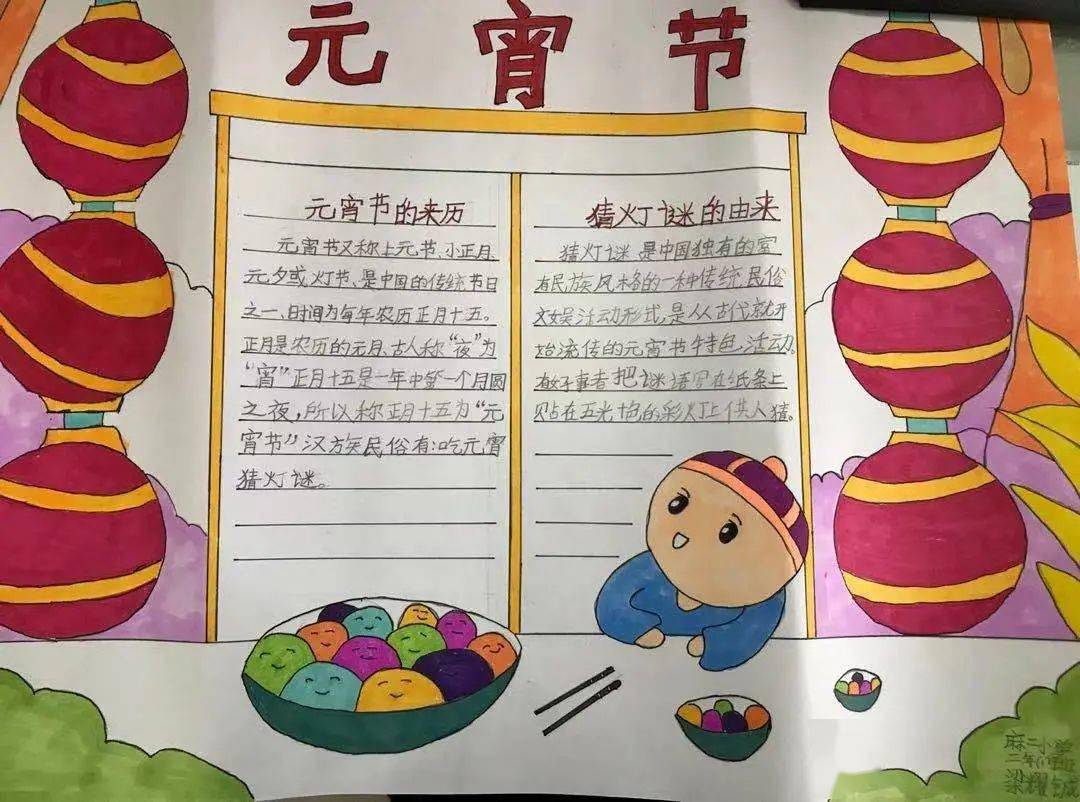 元宵节
元宵节的来历
元宵节又称上元节、小正月、
元夕或灯节、是中国的传统节日
之一、时间为每年农历正月十五。
正月是农历的元月、古人称“夜”为
“宵”正月十五是一年中第一个月圆
之夜,所以称正月十五为“元
宵节”汉族民俗有:吃元宵
猜灯谜。
猜灯谜的由来
猜灯谜是中国独有的富
有民族风格的一种传统民俗
文娱活动形式,是从古代就开
始流传的元宵节特色活动。
有好事者把谜语写在纸条上
贴在五光十色的彩灯上供人猜。
麻二小学
梁耀